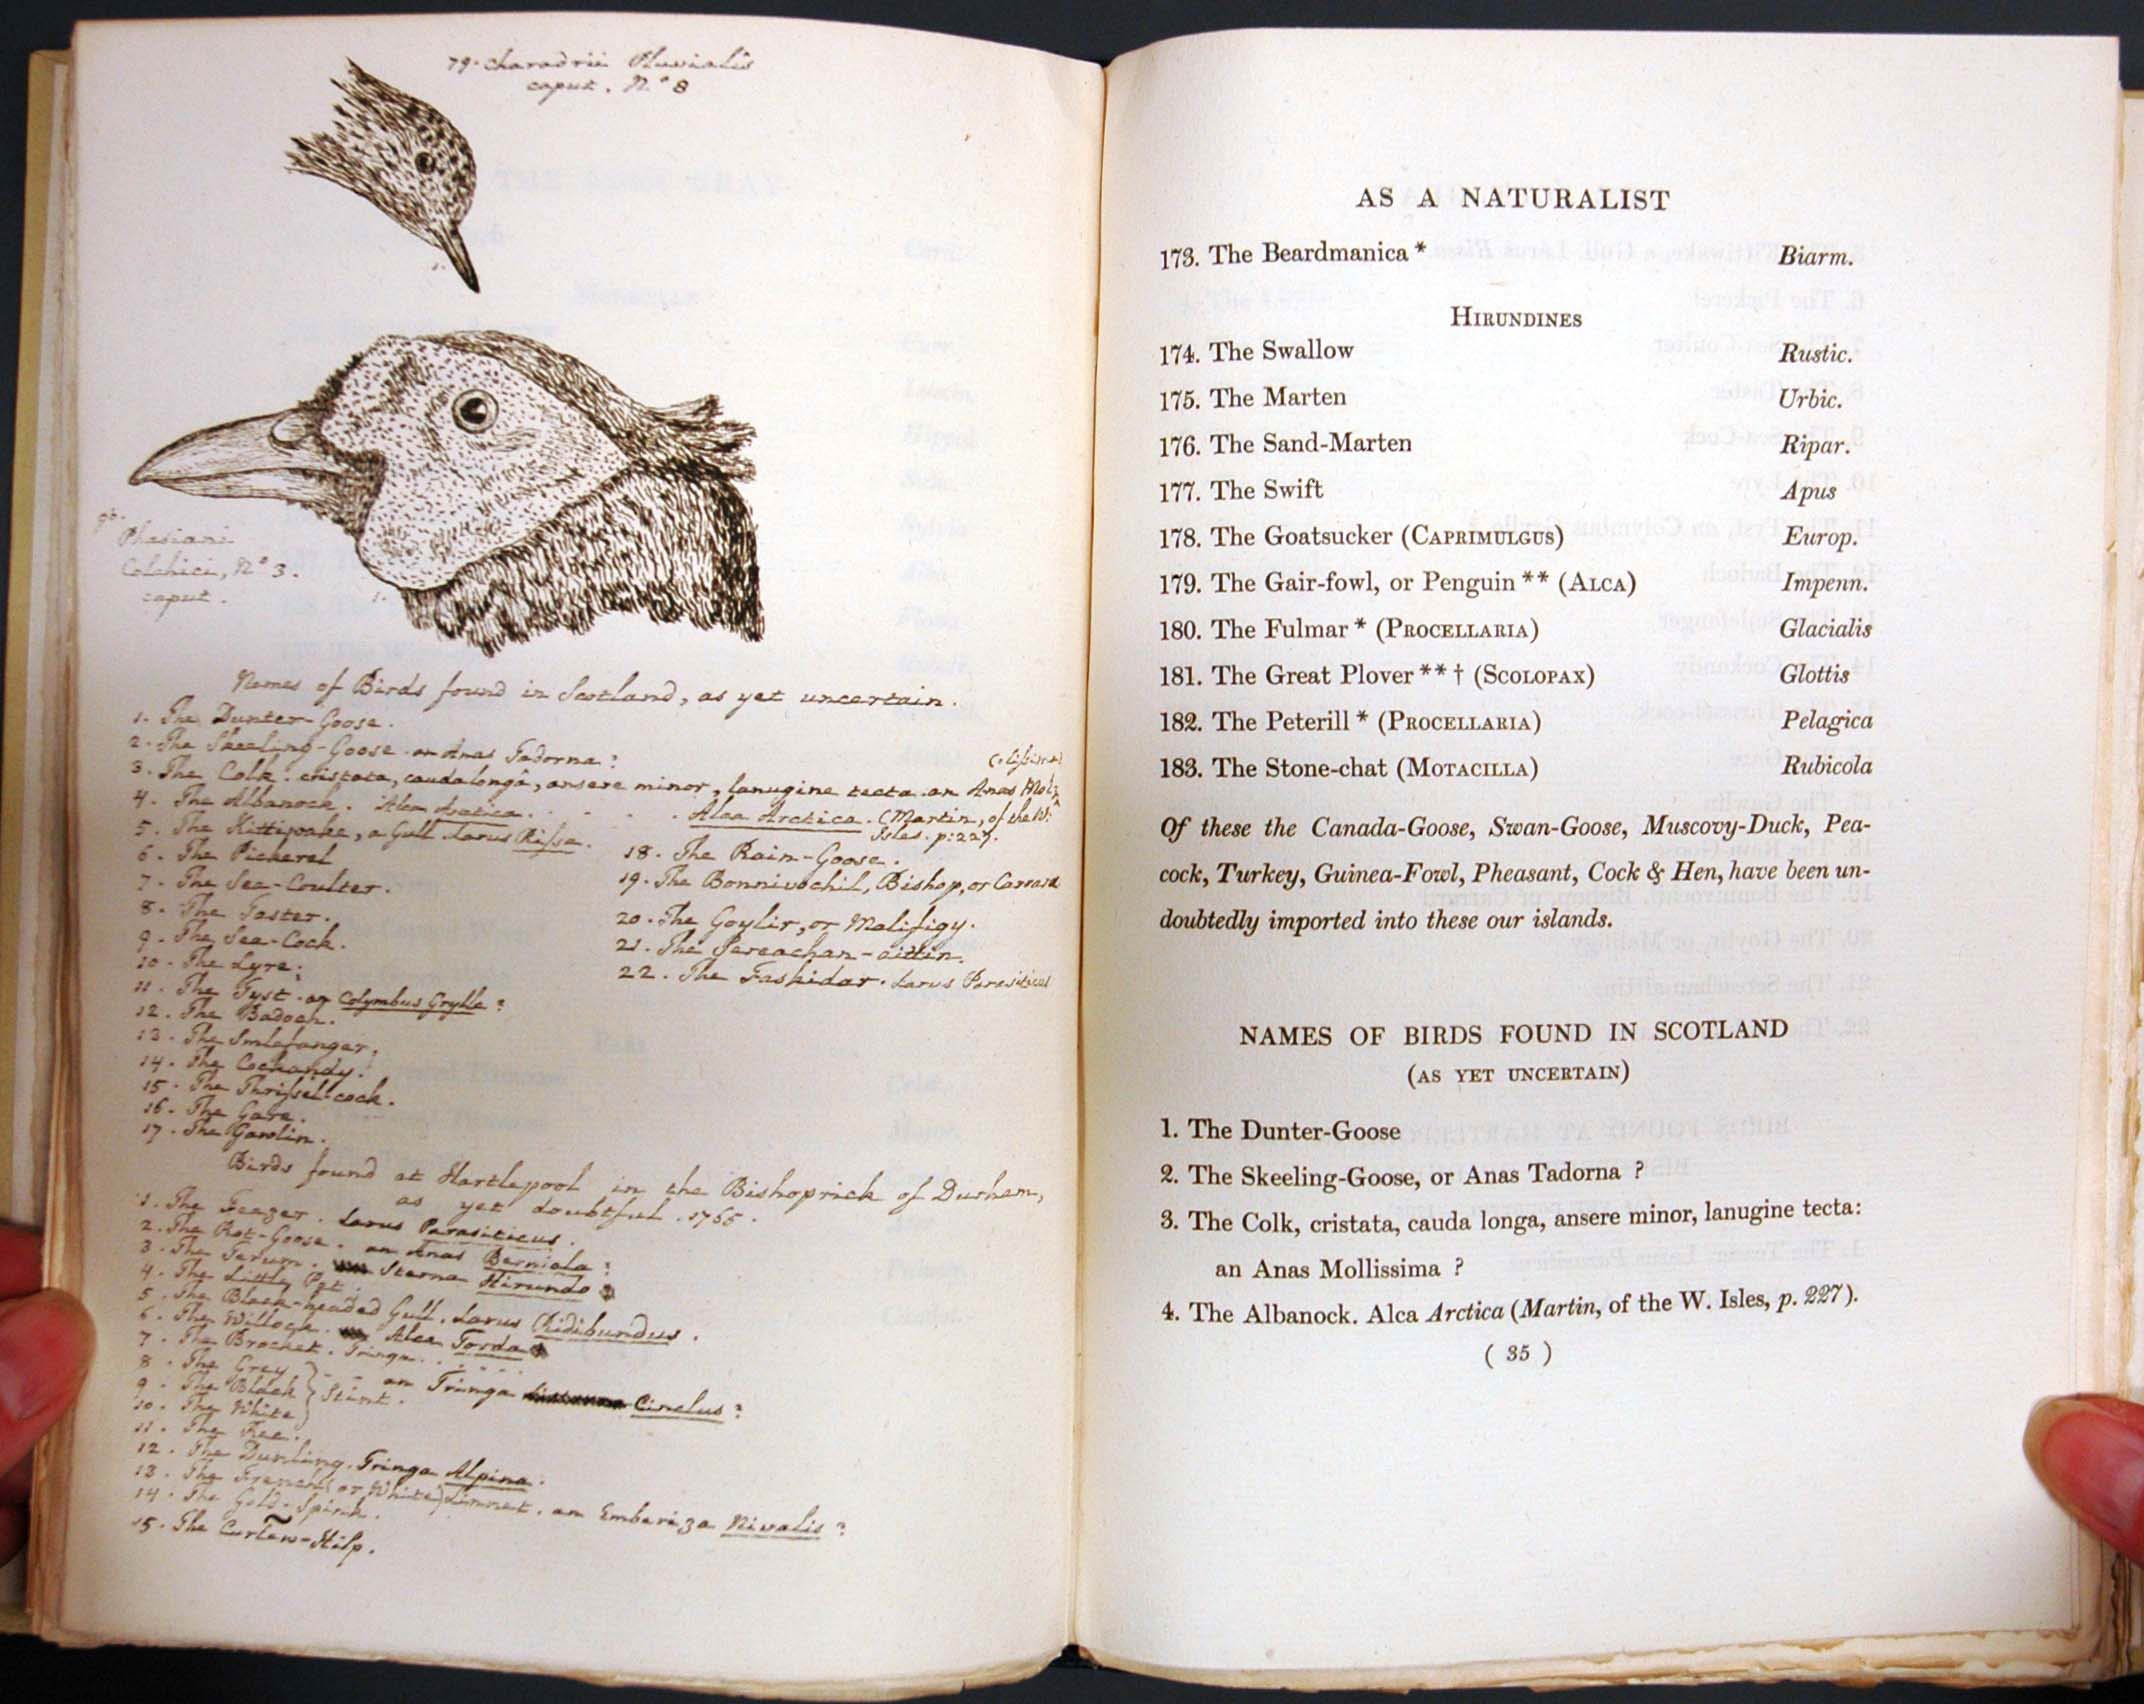 79. Charadrii Pluvialis
caput. N.º 8
96.
Phasiani
Colchici, N.º 3.
caput.
1.
1.
Names of Birds found in Scotland, as yet uncertain.
1. The Dunter-Goose.
2. The Skeeling-Goose. an Anas Tadorna?
3. The Colk. cristata, cauda longâ, ansere minor, lanugine tecta. an Anas
4. The Albanock. Alca Arctica. . . . . Alca Arctica. (Martin, of the W.
Isles. p: 227.
5. The Kittiwake, a Gull Larus Rissa.
6. The Pickerel
7. The Sea-Coulter.
8. The Taster.
9. The Sea-Cock.
10. The Lyre.
11. The Tyst. an Colymbus Grylle?
12. The Badoch.
13. The
14. The Cockandy.
15. The Thrissell-cock.
16. The Gare.
17. The Gawlin.
18. The Rain-Goose.
19. The Bonnivochil, Bishop, or Carrara
20. The Goylir, or Malifigy.
21. The Sereachan-aittin.
22. The Faskidar. Larus Parasiticus
Birds found at Hartlepool in the Bishoprick of Durham,
as yet doubtful. 1765.
1. The Feazer. Larus Parasiticus.
2. The Rot-Goose. an Anas Bernicla?
3. The Tarum. Sterna Hirundo
4. The Little Pet.
5. The Black-headed Gull. Larus Ridibundus.
6. The Willock. Alca Torda
7. The Brocket. Tringa. . . . .
8. The Grey
9. The Black } Stint. an Tringa Cinclus?
10. The White
11. The Kee.
12. The Durling. Tringa Alpina.
13. The French (or White) Linnet. an Emberiza Nivalis?
14. The Gold-Spink.
15. The Curlew-Hilp.
AS A NATURALIST
173. The Beardmanica * Biarm.
HIRUNDINES
174. The Swallow Rustic.
175. The Marten Urbic.
176. The Sand-Marten Ripar.
177. The Swift Apus
178. The Goatsucker (CAPRIMULGUS) Europ.
179. The Gair-fowl, or Penguin ** (ALCA) Impenn.
180. The Fulmar * (PROCELLARIA) Glacialis
181. The Great Plover ** † (SCOLOPAX) Glottis
182. The Peterill * (PROCELLARIA) Pelagica
183. The Stone-chat (MOTACILLA) Rubicola
Of these the Canada-Goose, Swan-Goose, Muscovy-Duck, Pea-
cock, Turkey, Guinea-Fowl, Pheasant, Cock & Hen, have been un-
doubtedly imported into these our islands.
NAMES OF BIRDS FOUND IN SCOTLAND
(AS YET UNCERTAIN)
1. The Dunter-Goose
2. The Skeeling-Goose, or Anas Tadorna ?
3. The Colk, cristata, cauda longa, ansere minor, lanugine tecta:
an Anas Mollissima ?
4. The Albanock. Alca Arctica (Martin, of the W. Isles, p. 227).
( 35 )